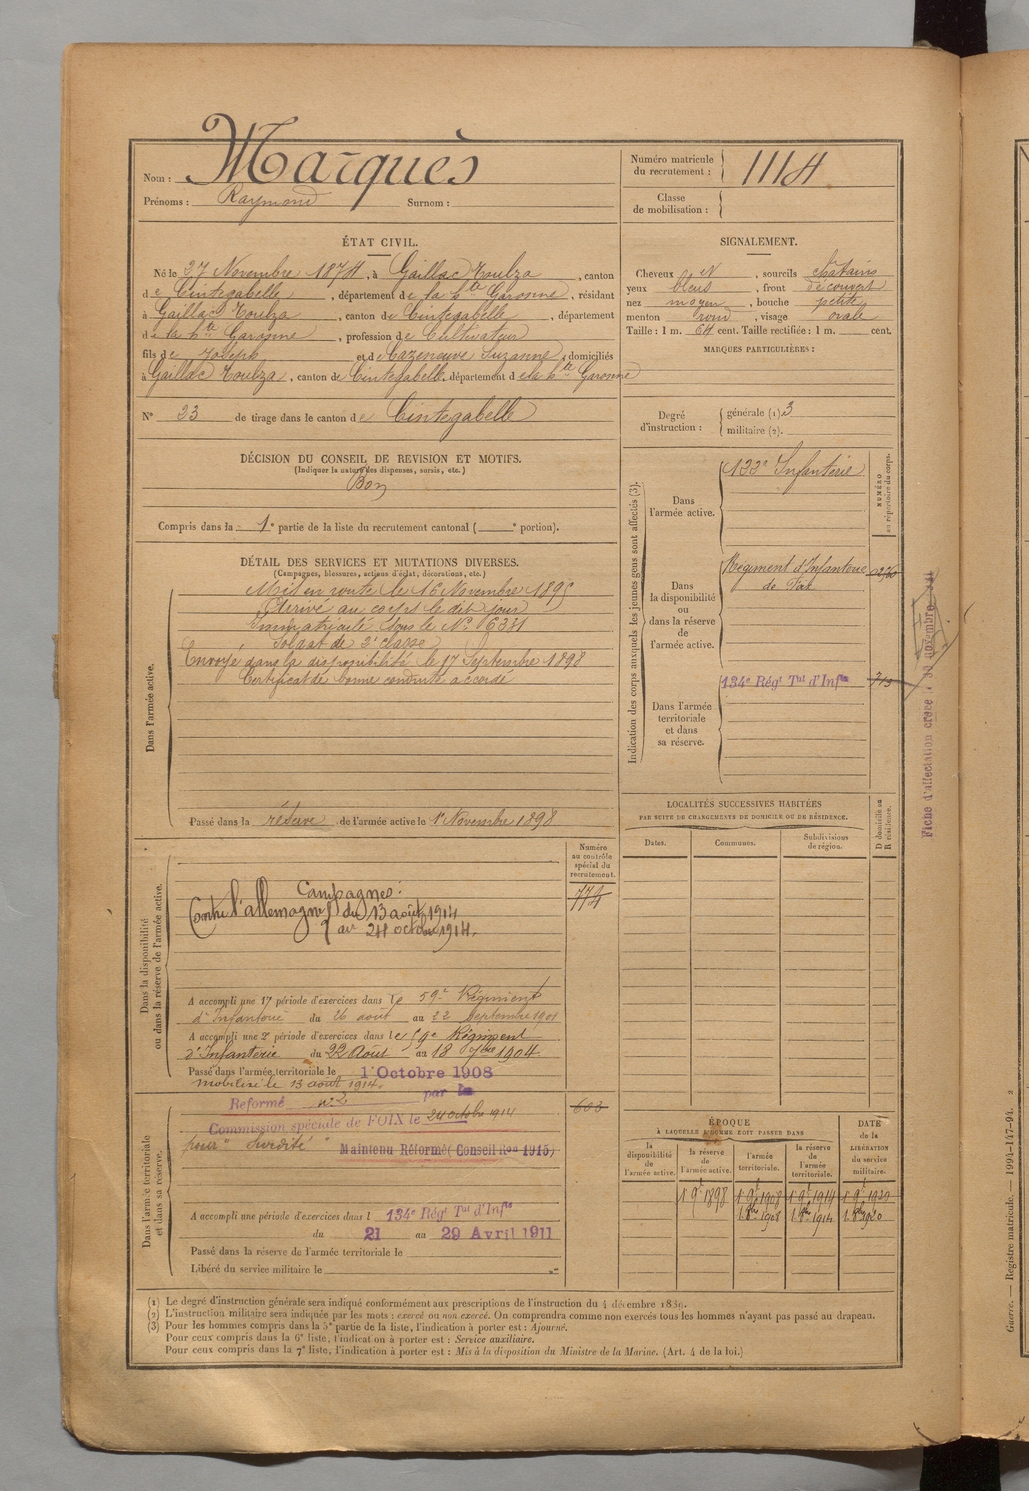 Nom : Marquès
Prénoms : Raymond Surnom :
Numéro matricule du recrutement : 1114
Classe de mobilisation :
ÉTAT CIVIL.
Né le 27 Novembre 1874, à Gaillac Toulza, canton
de Cintegabelle, département de la hte Garonne, résidant
à Gaillac Toulza, canton de Cintegabelle, département
de la hte Garonne, profession de Cultivateur
fils de Joseph et de Cazeneuve Suzanne, domiciliés
à Gaillac Toulza, canton de Cintegabelle, département de la hte Garonne
N° 23 de tirage dans le canton de Cintegabelle
SIGNALEMENT.
Cheveux N, sourcils chatains
yeux bleus, front découvert
nez moyen, bouche petite
menton rond, visage ovale
Taille : 1 m. 64 cent. Taille rectifiée : 1 m. cent.
MARQUES PARTICULIÈRES :
Degré d'instruction : générale (1). 3
militaire (2).
DÉCISION DU CONSEIL DE REVISION ET MOTIFS.
(Indiquer la nature des dispenses, sursis, etc.)
Bon
Compris dans la 1e partie de la liste du recrutement cantonal ( e portion).
DÉTAIL DES SERVICES ET MUTATIONS DIVERSES.
(Campagnes, blessures, actions d'éclat, décorations, etc.)
Dans l'armée active.
Mis en route le 16 Novembre 1895
Arrivé au corps le dit jour
Immatriculé sous le N° 6341
Soldat de 2e classe
Envoyé dans la disponibilité le 17 Septembre 1898
Certificat de bonne conduite accordé
Passé dans la réserve de l'armée active le 1er Novembre 1898
Indication des corps auxquels les jeunes gens sont affectés (3).
NUMÉRO au répertoire du corps.
Dans l'armée active.
133e Infanterie
Dans la disponibilité ou dans la réserve de l'armée active.
Régiment d'Infanterie
de Fax
Dans l'armée territoriale et dans sa réserve.
134e Régt Tal d'Infie
713
Fiche d'affectation créée le 30 novembre
LOCALITÉS SUCCESSIVES HABITÉES
PAR SUITE DE CHANGEMENTS DE DOMICILE OU DE RÉSIDENCE.
Dates. Communes. Subdivisions de région. D domicile ou R résidence.
Dans la disponibilité ou dans la réserve de l'armée active.
Numéro au contrôle spécial du recrutement.
774
Campagnes :
Contre l'allemagne du 13 août 1914
au 24 octobre 1914.
A accompli une 1e période d'exercices dans le 59e Régiment
d'Infanterie du 26 août au 22 Septembre 1901
A accompli une 2e période d'exercices dans le 59e Régiment
d'Infanterie du 22 Août au 18 7bre 1904.
Passé dans l'armée territoriale le 1er Octobre 1908
mobilisé le 13 août 1914.
Dans l'armée territoriale et dans sa réserve.
603
Réformé n° 2 par la
Commission spéciale de FOIX le 24 octobre 1914
pour "Surdité" Maintenu Réformé (Conseil Ron 1915)
A accompli une période d'exercices dans l 134e Régt Tal d'Infie
du 21 au 29 Avril 1911
Passé dans la réserve de l'armée territoriale le
Libéré du service militaire le
ÉPOQUE
À LAQUELLE L'HOMME DOIT PASSER DANS
la disponibilité de l'armée active. la réserve de l'armée active. l'armée territoriale. la réserve de l'armée territoriale.
DATE de la LIBÉRATION du service militaire.
1 9e 1898 1 9e 1908 1 9e 1914 1 9e 1920
1 8bre 1908 1 8bre 1914 1 8bre 1920
(1) Le degré d'instruction générale sera indiqué conformément aux prescriptions de l'instruction du 4 décembre 1889.
(2) L'instruction militaire sera indiquée par les mots : exercé ou non exercé. On comprendra comme non exercés tous les hommes n'ayant pas passé au drapeau.
(3) Pour les hommes compris dans la 5e partie de la liste, l'indication à porter est : Ajourné.
Pour ceux compris dans la 6e liste, l'indication à porter est : Service auxiliaire.
Pour ceux compris dans la 7e liste, l'indication à porter est : Mis à la disposition du Ministre de la Marine. (Art. 4 de la loi.)
Guerre. — Registre matricule. — 1994-147-94. 2